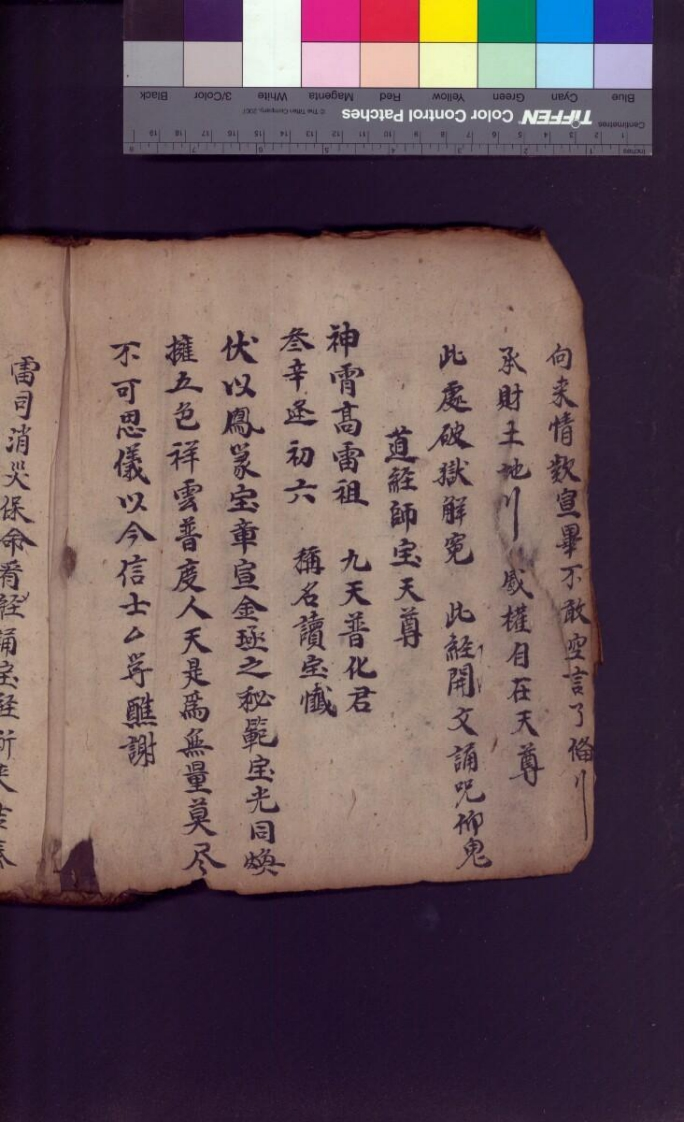 Blue Cyan Green Yellow Red Magenta White 3/Color Black
Centimetres TIFFEN Color Control Patches © The Tiffen Company, 2007
Inches
向来情欵宣畢不敢空言了俻
承財土地 威權自在天尊
此處破獄解冤 此經開文誦咒仰鬼
道經師宝天尊
神霄高雷祖 九天普化君
叁辛逐初六 稱名讀宝懺
伏以鳳篆宝章宣金 之秘範宝光同煥
擁五色祥雲普度人天是爲無量莫尽
不可思儀以今信士厶 醮謝
雷司消災保命看經誦宝經所